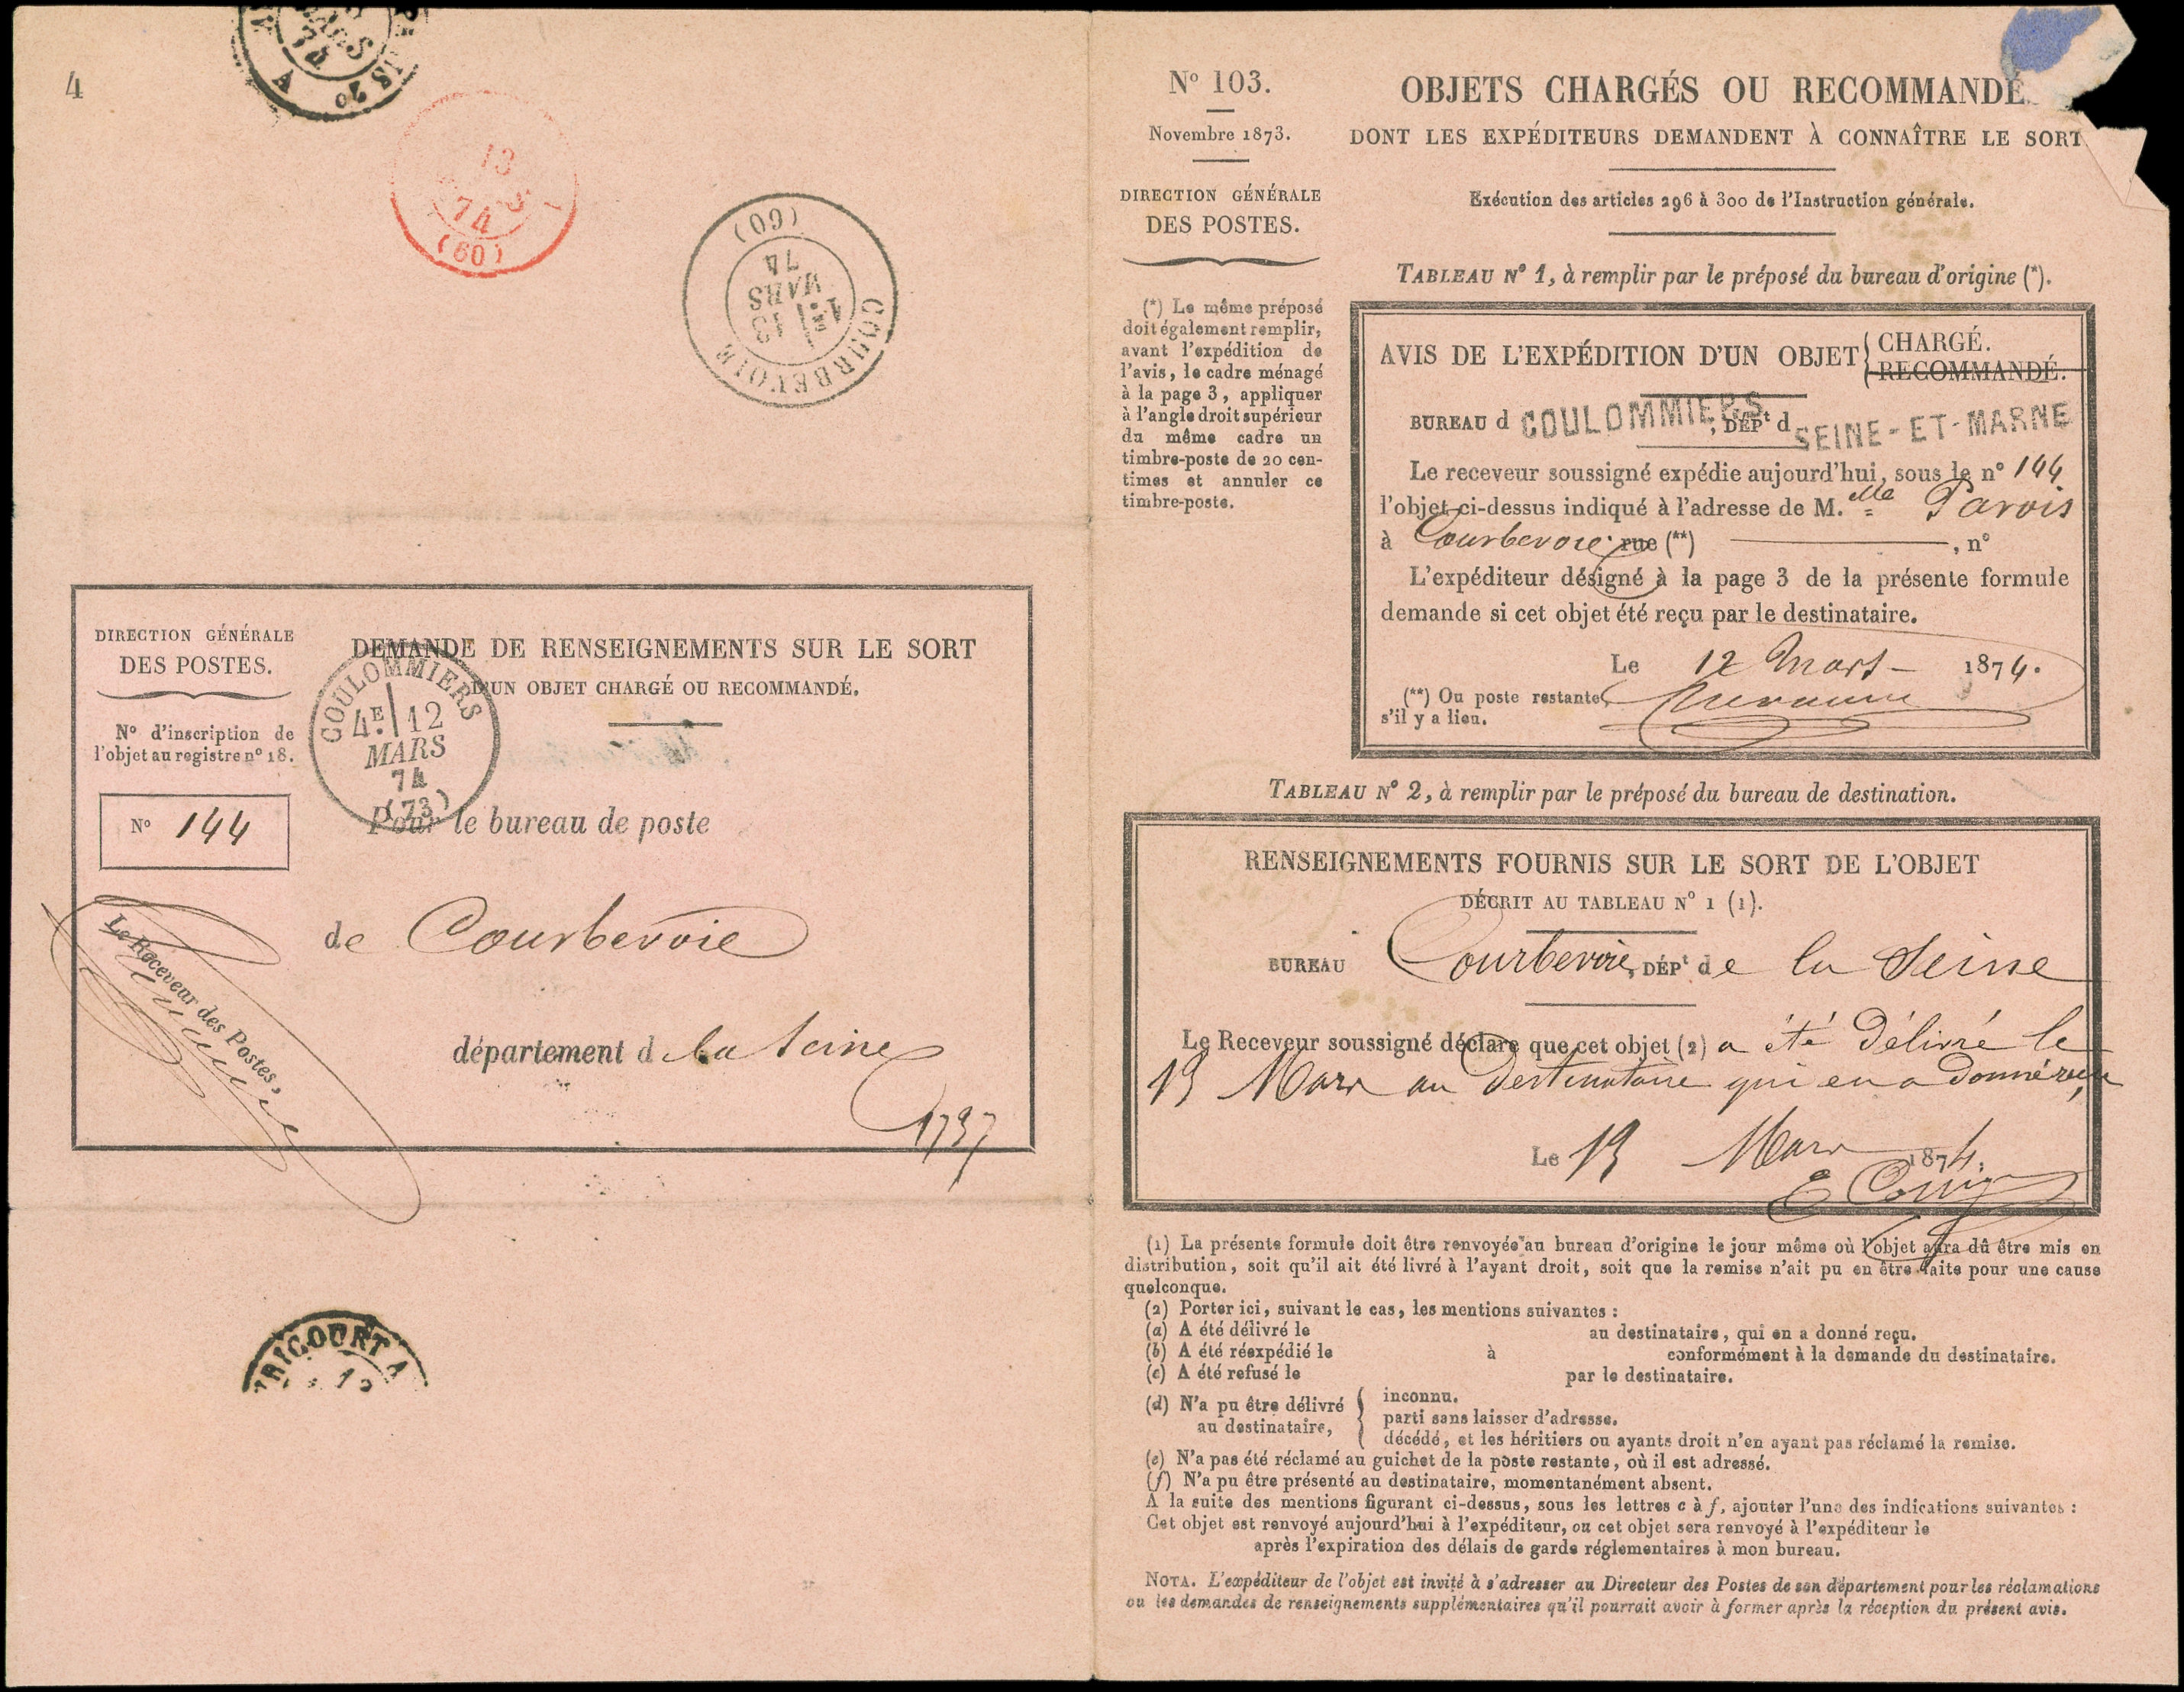 4
MARS
74
13
74
(60)
COURBEVOIE
(60)
1E
13
MARS
74
DIRECTION GÉNÉRALE
DES POSTES.
DEMANDE DE RENSEIGNEMENTS SUR LE SORT
D'UN OBJET CHARGÉ OU RECOMMANDÉ.
N° d'inscription de
l'objet au registre n° 18.
COULOMMIERS
4E 12
MARS
74
(73)
N° 144
Pour le bureau de poste
de Courbevoie
département d la Seine
Le Receveur des Postes,
1797
RICOURT A
N° 103.
Novembre 1873.
DIRECTION GÉNÉRALE
DES POSTES.
(*) Le même préposé
doit également remplir,
avant l'expédition de
l'avis, le cadre ménagé
à la page 3, appliquer
à l'angle droit supérieur
du même cadre un
timbre-poste de 20 cen-
times et annuler ce
timbre-poste.
OBJETS CHARGÉS OU RECOMMANDÉ
DONT LES EXPÉDITEURS DEMANDENT À CONNAÎTRE LE SORT
Exécution des articles 296 à 300 de l'Instruction générale.
TABLEAU N° 1, à remplir par le préposé du bureau d'origine (*).
AVIS DE L'EXPÉDITION D'UN OBJET { CHARGÉ.
RECOMMANDÉ.
BUREAU d COULOMMIERS, DÉPt d SEINE-ET-MARNE
Le receveur soussigné expédie aujourd'hui, sous le n° 144
l'objet ci-dessus indiqué à l'adresse de M.elle Parois
à Courbevoie rue (**) , n°
L'expéditeur désigné à la page 3 de la présente formule
demande si cet objet été reçu par le destinataire.
Le 12 Mars 1874.
(**) Ou poste restante
s'il y a lieu.
TABLEAU N° 2, à remplir par le préposé du bureau de destination.
RENSEIGNEMENTS FOURNIS SUR LE SORT DE L'OBJET
DÉCRIT AU TABLEAU N° 1 (1).
BUREAU Courbevoie, DÉPt de la Seine
Le Receveur soussigné déclare que cet objet (2) a été délivré le
13 Mars au destinataire qui en a donné reçu
Le 13 Mars 1874.
(1) La présente formule doit être renvoyée au bureau d'origine le jour même où l'objet aura dû être mis en
distribution, soit qu'il ait été livré à l'ayant droit, soit que la remise n'ait pu en être faite pour une cause
quelconque.
(2) Porter ici, suivant le cas, les mentions suivantes :
(a) A été délivré le au destinataire, qui en a donné reçu.
(b) A été réexpédié le à conformément à la demande du destinataire.
(c) A été refusé le par le destinataire.
(d) N'a pu être délivré
au destinataire, { inconnu.
parti sans laisser d'adresse.
décédé, et les héritiers ou ayants droit n'en ayant pas réclamé la remise.
(e) N'a pas été réclamé au guichet de la poste restante, où il est adressé.
(f) N'a pu être présenté au destinataire, momentanément absent.
A la suite des mentions figurant ci-dessus, sous les lettres c à f, ajouter l'une des indications suivantes :
Cet objet est renvoyé aujourd'hui à l'expéditeur, ou cet objet sera renvoyé à l'expéditeur le
après l'expiration des délais de garde réglementaires à mon bureau.
NOTA. L'expéditeur de l'objet est invité à s'adresser au Directeur des Postes de son département pour les réclamations
ou les demandes de renseignements supplémentaires qu'il pourrait avoir à former après la réception du présent avis.